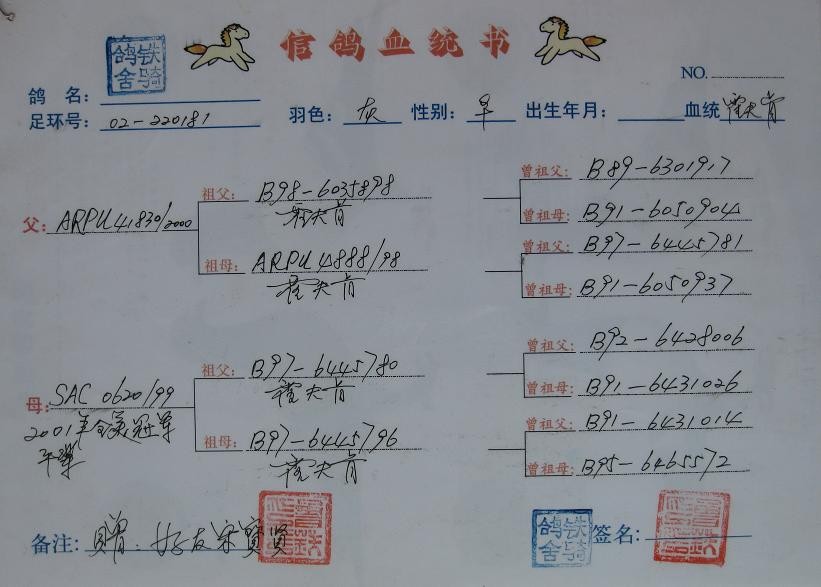 信鸽血统书
铁骑
鸽舍
NO.
鸽 名：
足环号： 02-220181 羽色： 灰 性别： 出生年月： 血统 霍夫肯
父： ARPU 41830/2000
祖父： B98-6035898
霍夫肯
祖母： ARPU 4888/98
霍夫肯
曾祖父： B89-6301917
曾祖母： B91-6050904
曾祖父： B97-6445781
曾祖母： B91-6050937
母： SAC 0620/99
2001年 冠军
祖父： B97-6445780
霍夫肯
祖母： B97-6445796
霍夫肯
曾祖父： B92-6428006
曾祖母： B91-6431026
曾祖父： B91-6431014
曾祖母： B95-6465572
备注： 赠：好友宋宝贤
铁骑
鸽舍
签名：